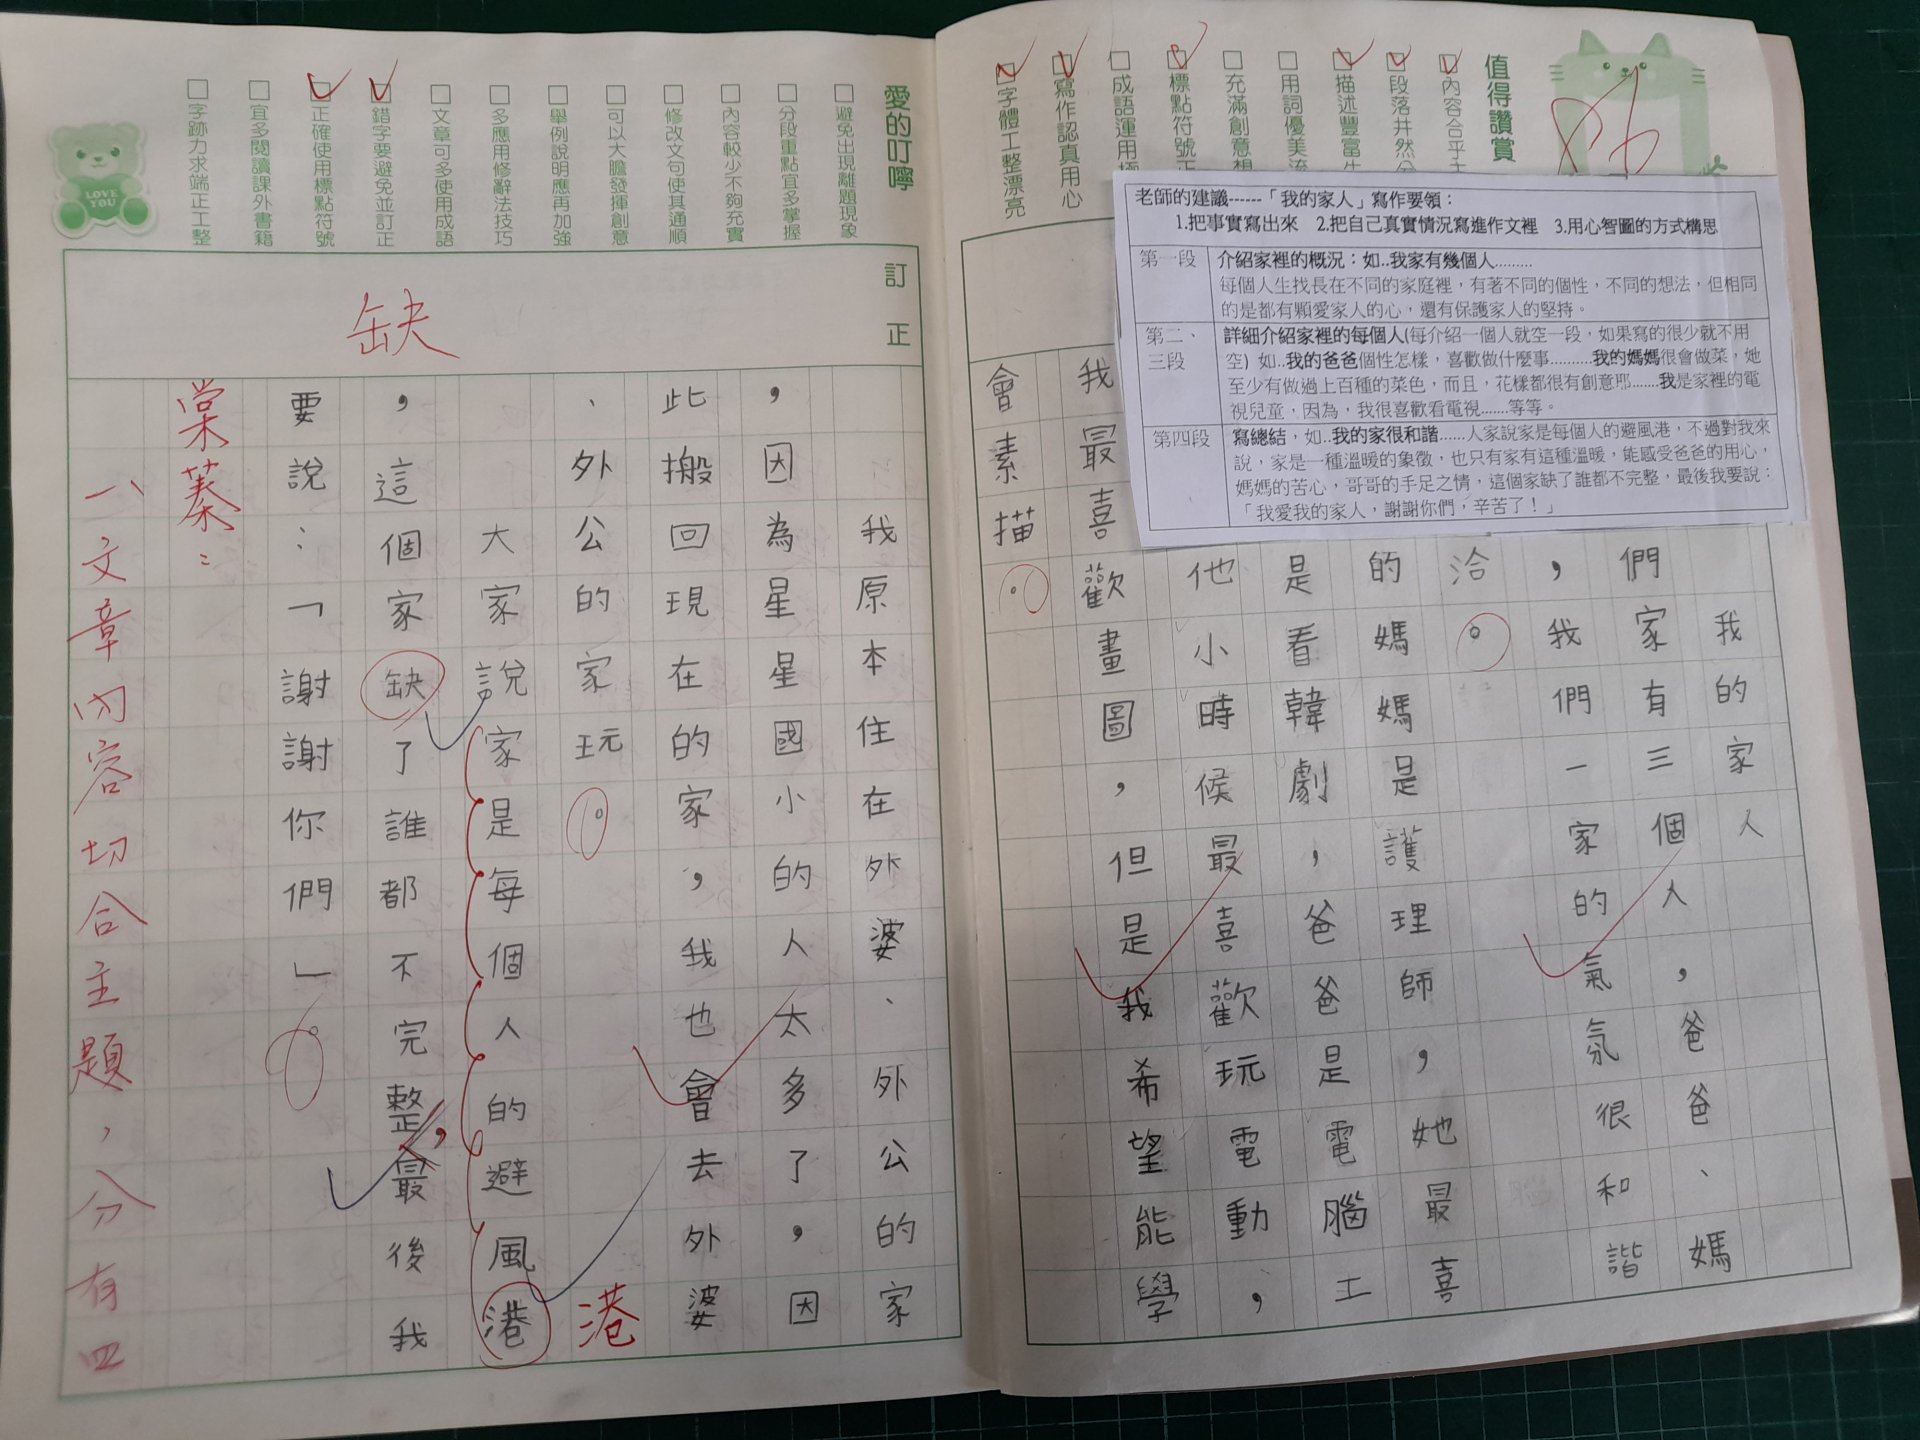 值得讚賞
內容合乎主
段落井然分
描述豐富生
用詞優美流
充滿創意想
標點符號正
成語運用極
寫作認真用心
字體工整漂亮
老師的建議------「我的家人」寫作要領：
1.把事實寫出來 2.把自己真實情況寫進作文裡 3.用心智圖的方式構思
第一段 介紹家裡的概況：如..我家有幾個人.........
每個人生找長在不同的家庭裡，有著不同的個性，不同的想法，但相同
的是都有顆愛家人的心，還有保護家人的堅持。
第二、 詳細介紹家裡的每個人(每介紹一個人就空一段，如果寫的很少就不用
三段 空) 如..我的爸爸個性怎樣，喜歡做什麼事.........我的媽媽很會做菜，她
至少有做過上百種的菜色，而且，花樣都很有創意耶.......我是家裡的電
視兒童，因為，我很喜歡看電視.......等等。
第四段 寫總結，如..我的家很和諧......人家說家是每個人的避風港，不過對我來
說，家是一種溫暖的象徵，也只有家有這種溫暖，能感受爸爸的用心，
媽媽的苦心，哥哥的手足之情，這個家缺了誰都不完整，最後我要說：
「我愛我的家人，謝謝你們，辛苦了！」
我的家人
們家有三個人，爸爸、媽
，我們一家的氣氛很和諧
洽。
的媽媽是護理師，她最喜
是看韓劇，爸爸是電腦工
他小時候最喜歡玩電動，
我最喜歡畫圖，但是我希望能學
會素描。
愛的叮嚀
避免出現離題現象
分段重點宜多掌握
內容較少不夠充實
修改文句使其通順
可以大膽發揮創意
舉例說明應再加強
多應用修辭法技巧
文章可多使用成語
錯字要避免並訂正
正確使用標點符號
宜多閱讀課外書籍
字跡力求端正工整
LOVE YOU
訂正
缺
我原本住在外婆、外公的家
，因為星星國小的人太多了，因
此搬回現在的家，我也會去外婆
、外公的家玩。
港
大家說家是每個人的避風港
，這個家缺了誰都不完整，最後我
要說：「謝謝你們」。
棠蓁：
一、文章內容切合主題，分有四